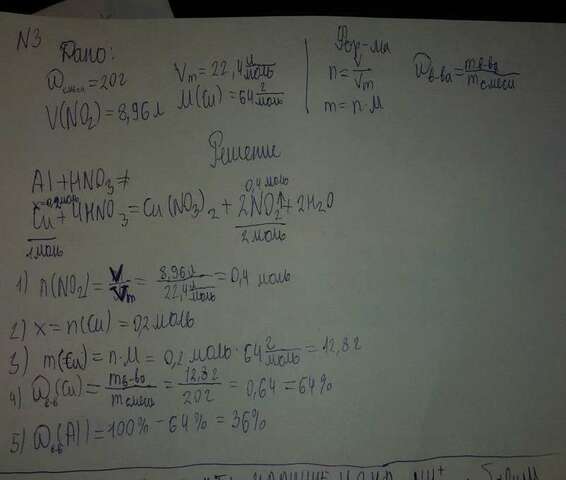 N3
Дано:
ω смеси = 20г
V(NO₂) = 8,96 л
Vm = 22,4 л/моль
M(Cu) = 64 г/моль
Фор-ма
n = V/Vm
m = n·M
ω в-ва = m в-ва/m смеси
Решение
Al + HNO₃ ≠
x=0,2моль 0,4 моль
Cu + 4HNO₃ = Cu(NO₃)₂ + 2NO₂↑ + 2H₂O
1 моль 2 моль
1) n(NO₂) = V/Vm = 8,96 л/22,4 л/моль = 0,4 моль
2) x = n(Cu) = 0,2 моль
3) m(Cu) = n·M = 0,2 моль · 64 г/моль = 12,8 г
4) ω в-в (Cu) = m в-во/m смеси = 12,8/20г = 0,64 = 64%
5) ω в-в (Al) = 100% - 64% = 36%